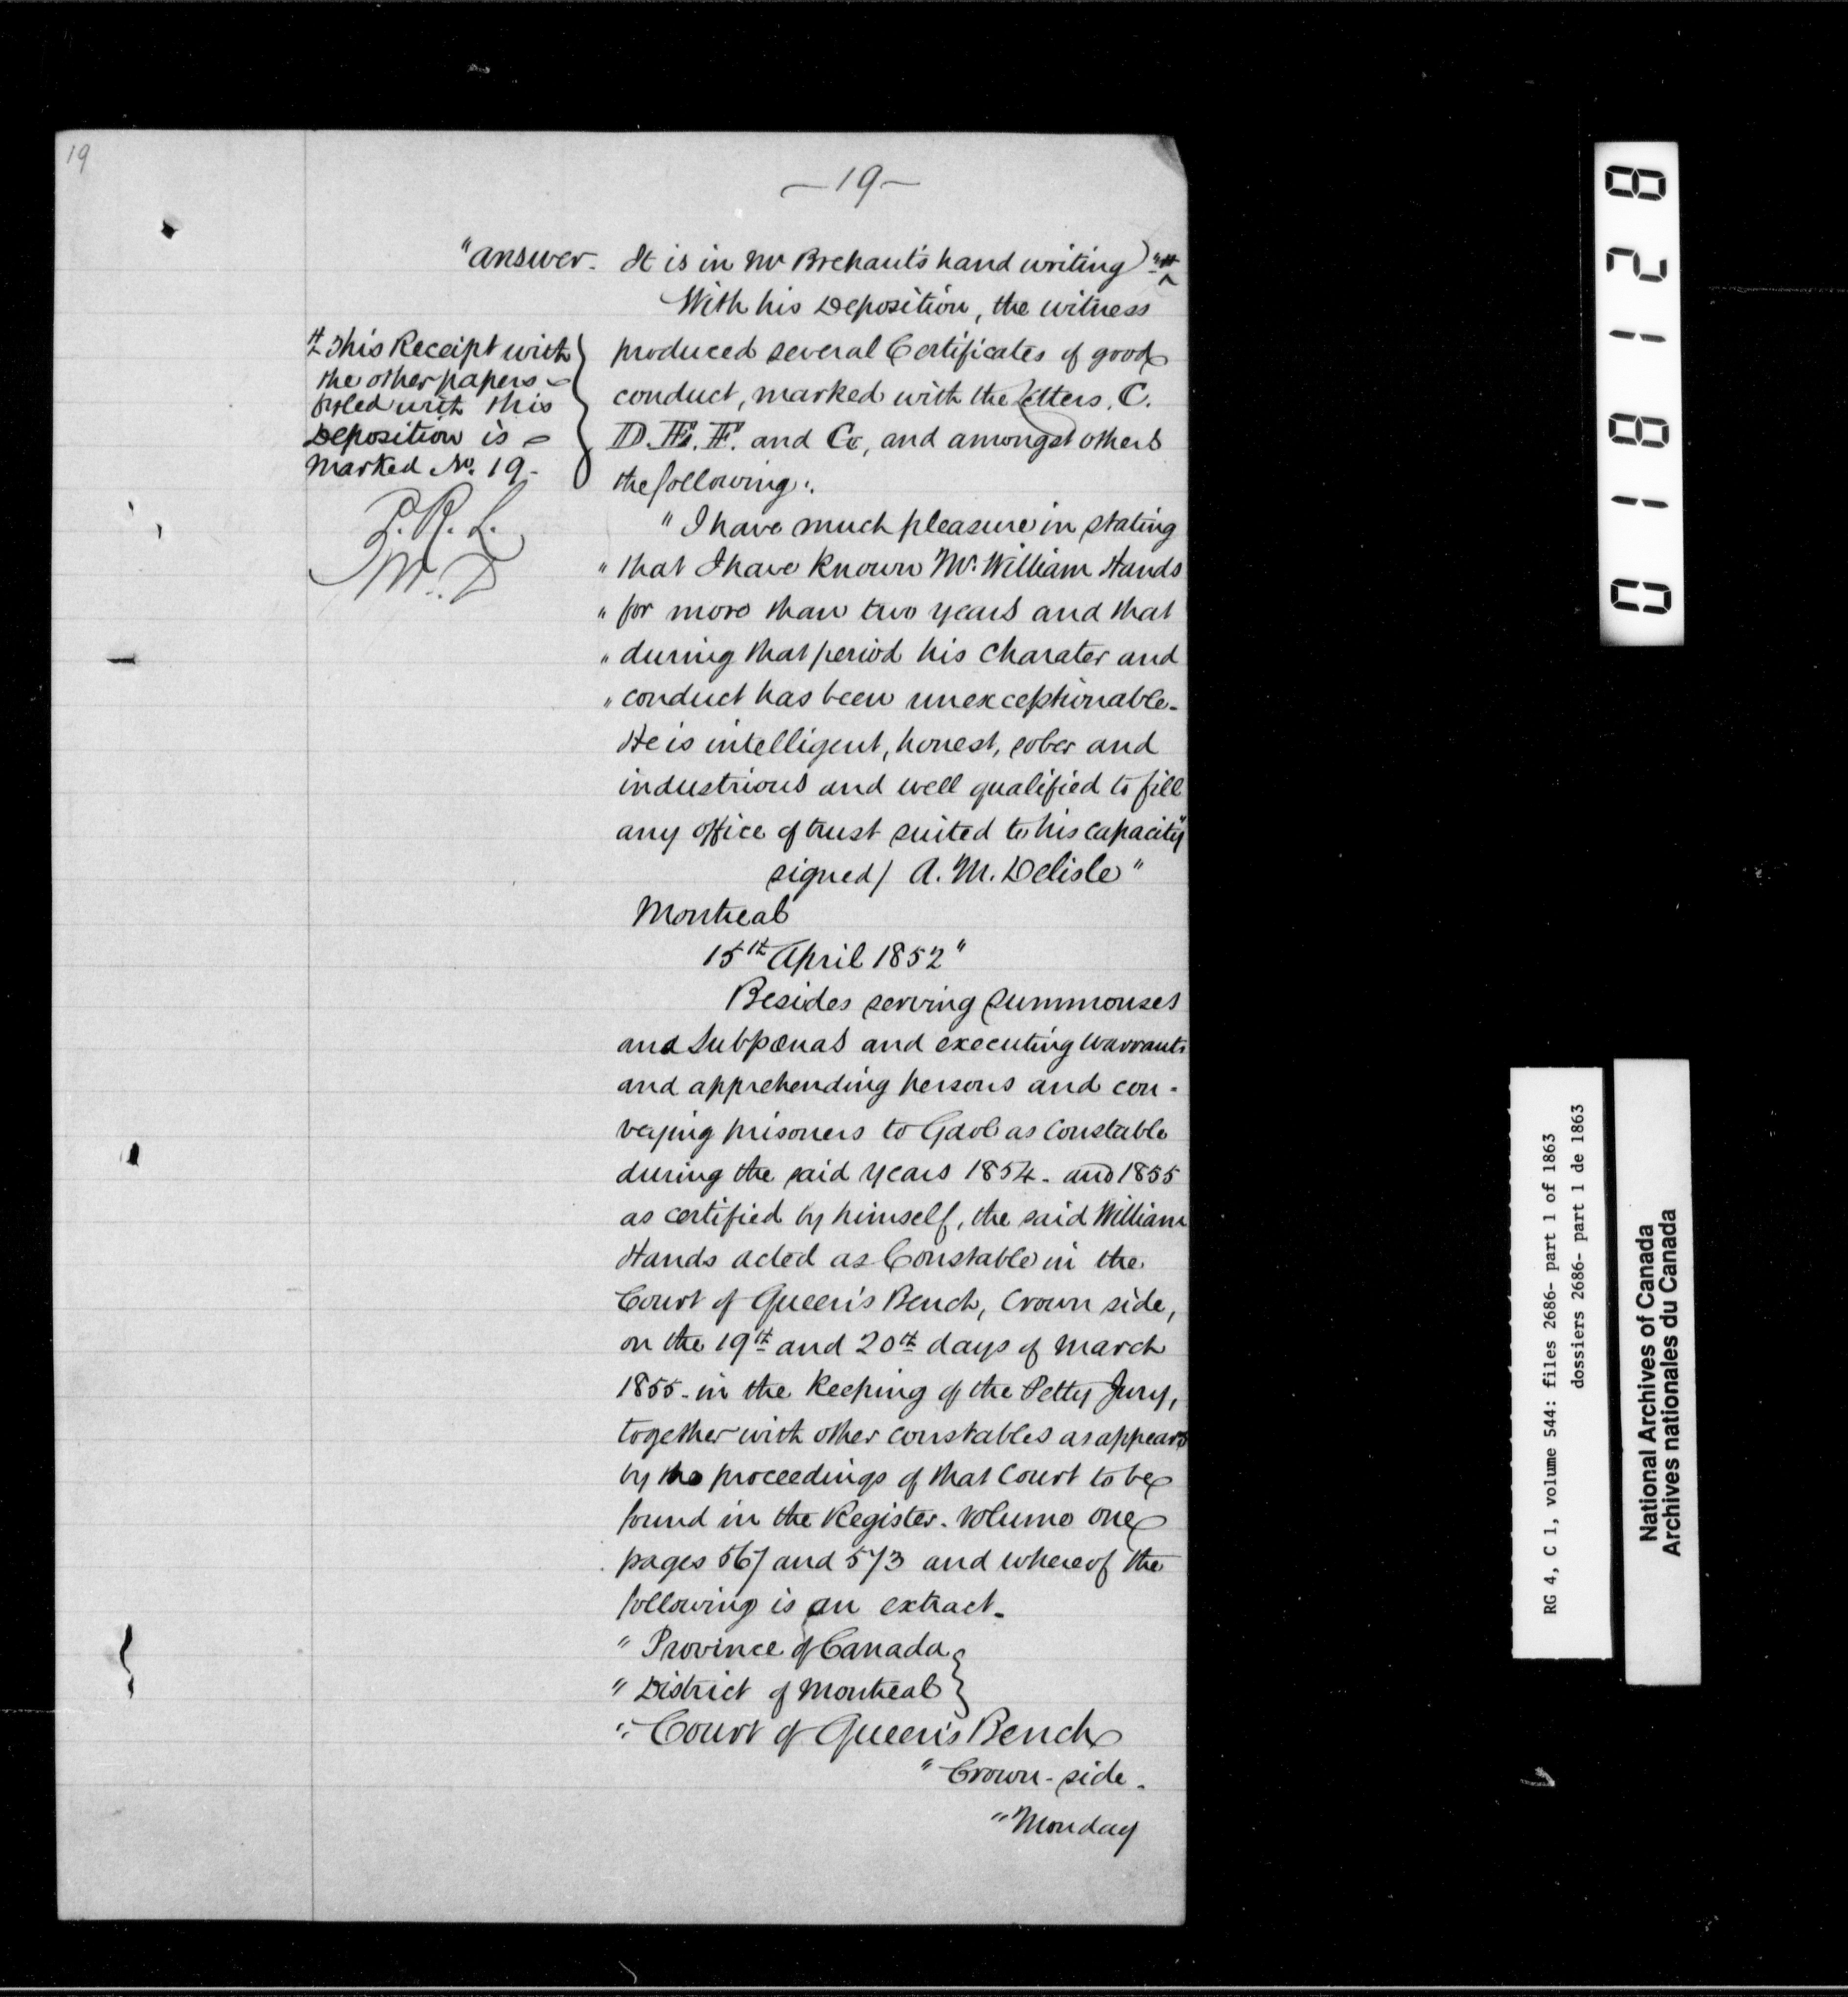 19
—19—
"Answer. It is in Mr Brehaut's hand writing)" #
With his Deposition, the witness
produced several Certificates of good
conduct, marked with the Letters. C.
D. E. F. and G, and amongst others
the following:.
# This Receipt with
the other papers
fyled with this
Deposition is
marked No. 19-
P. R. L.
M. D
"I have much pleasure in stating
"that I have known Mr. William Hands
"for more than two years and that
"during that period his Charater and
"conduct has been unexceptionable.
He is intelligent, honest, sober and
industrious and well qualified to fill
any office of trust suited to his capacity"
signed/ A. M. Delisle"
Montreal
15th April 1852"
Besides serving summonses
and Subpœnas and executing warrants
and apprehending persons and con-
veying prisoners to Gaol as Constable
during the said years 1854. and 1855
as certified by himself, the said William
Hands acted as Constable in the
Court of Queen's Bench, Crown side,
on the 19th and 20th days of March
1855. in the keeping of the Petty Jury,
together with other constables as appears
by the proceedings of that Court to be
found in the Register. Volume one
pages 567 and 573 and whereof the
following is an extract.
"Province of Canada }
"District of Montreal }
"Court of Queen's Bench
"Crown-side.
"Monday
018128
RG 4, C 1, volume 544: files 2686- part 1 of 1863
dossiers 2686- part 1 de 1863
National Archives of Canada
Archives nationales du Canada